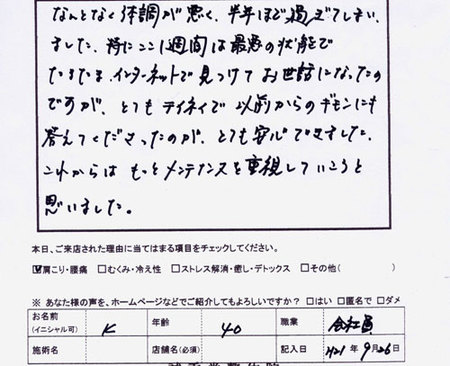 なんとなく体調が悪く、半年ほど過ぎてしまい
ました、特にここ1週間は最悪の状態で
たまたまインターネットで見つけてお世話になったの
ですが、とてもテイネイで以前からのギモンにも
答えてくださったのが、とても安心できました、
これからはもっとメンテナンスを重視していこうと
思いました。
本日、ご来店された理由に当てはまる項目をチェックしてください。
☑肩こり・腰痛 □むくみ・冷え性 □ストレス解消・癒し・デトックス □その他( )
※ あなた様の声を、ホームページなどでご紹介してもよろしいですか? □はい □匿名で □ダメ
お名前(イニシャル可) K 年齢 40 職業 会社員
施術名 店舗名(必須) 記入日 H21年9月26日